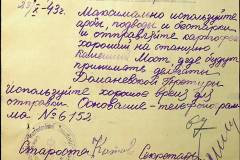 23/X-43г. Максимально используйте
арбы, подводы и бестарки
и отправляйте
хороший на станцию
Каменный Мост, где будут
принимать
Доманевской Управы
Используйте хорошее время для
отправки Основание - телефоно
ма № 6152
Староста
Секретарь